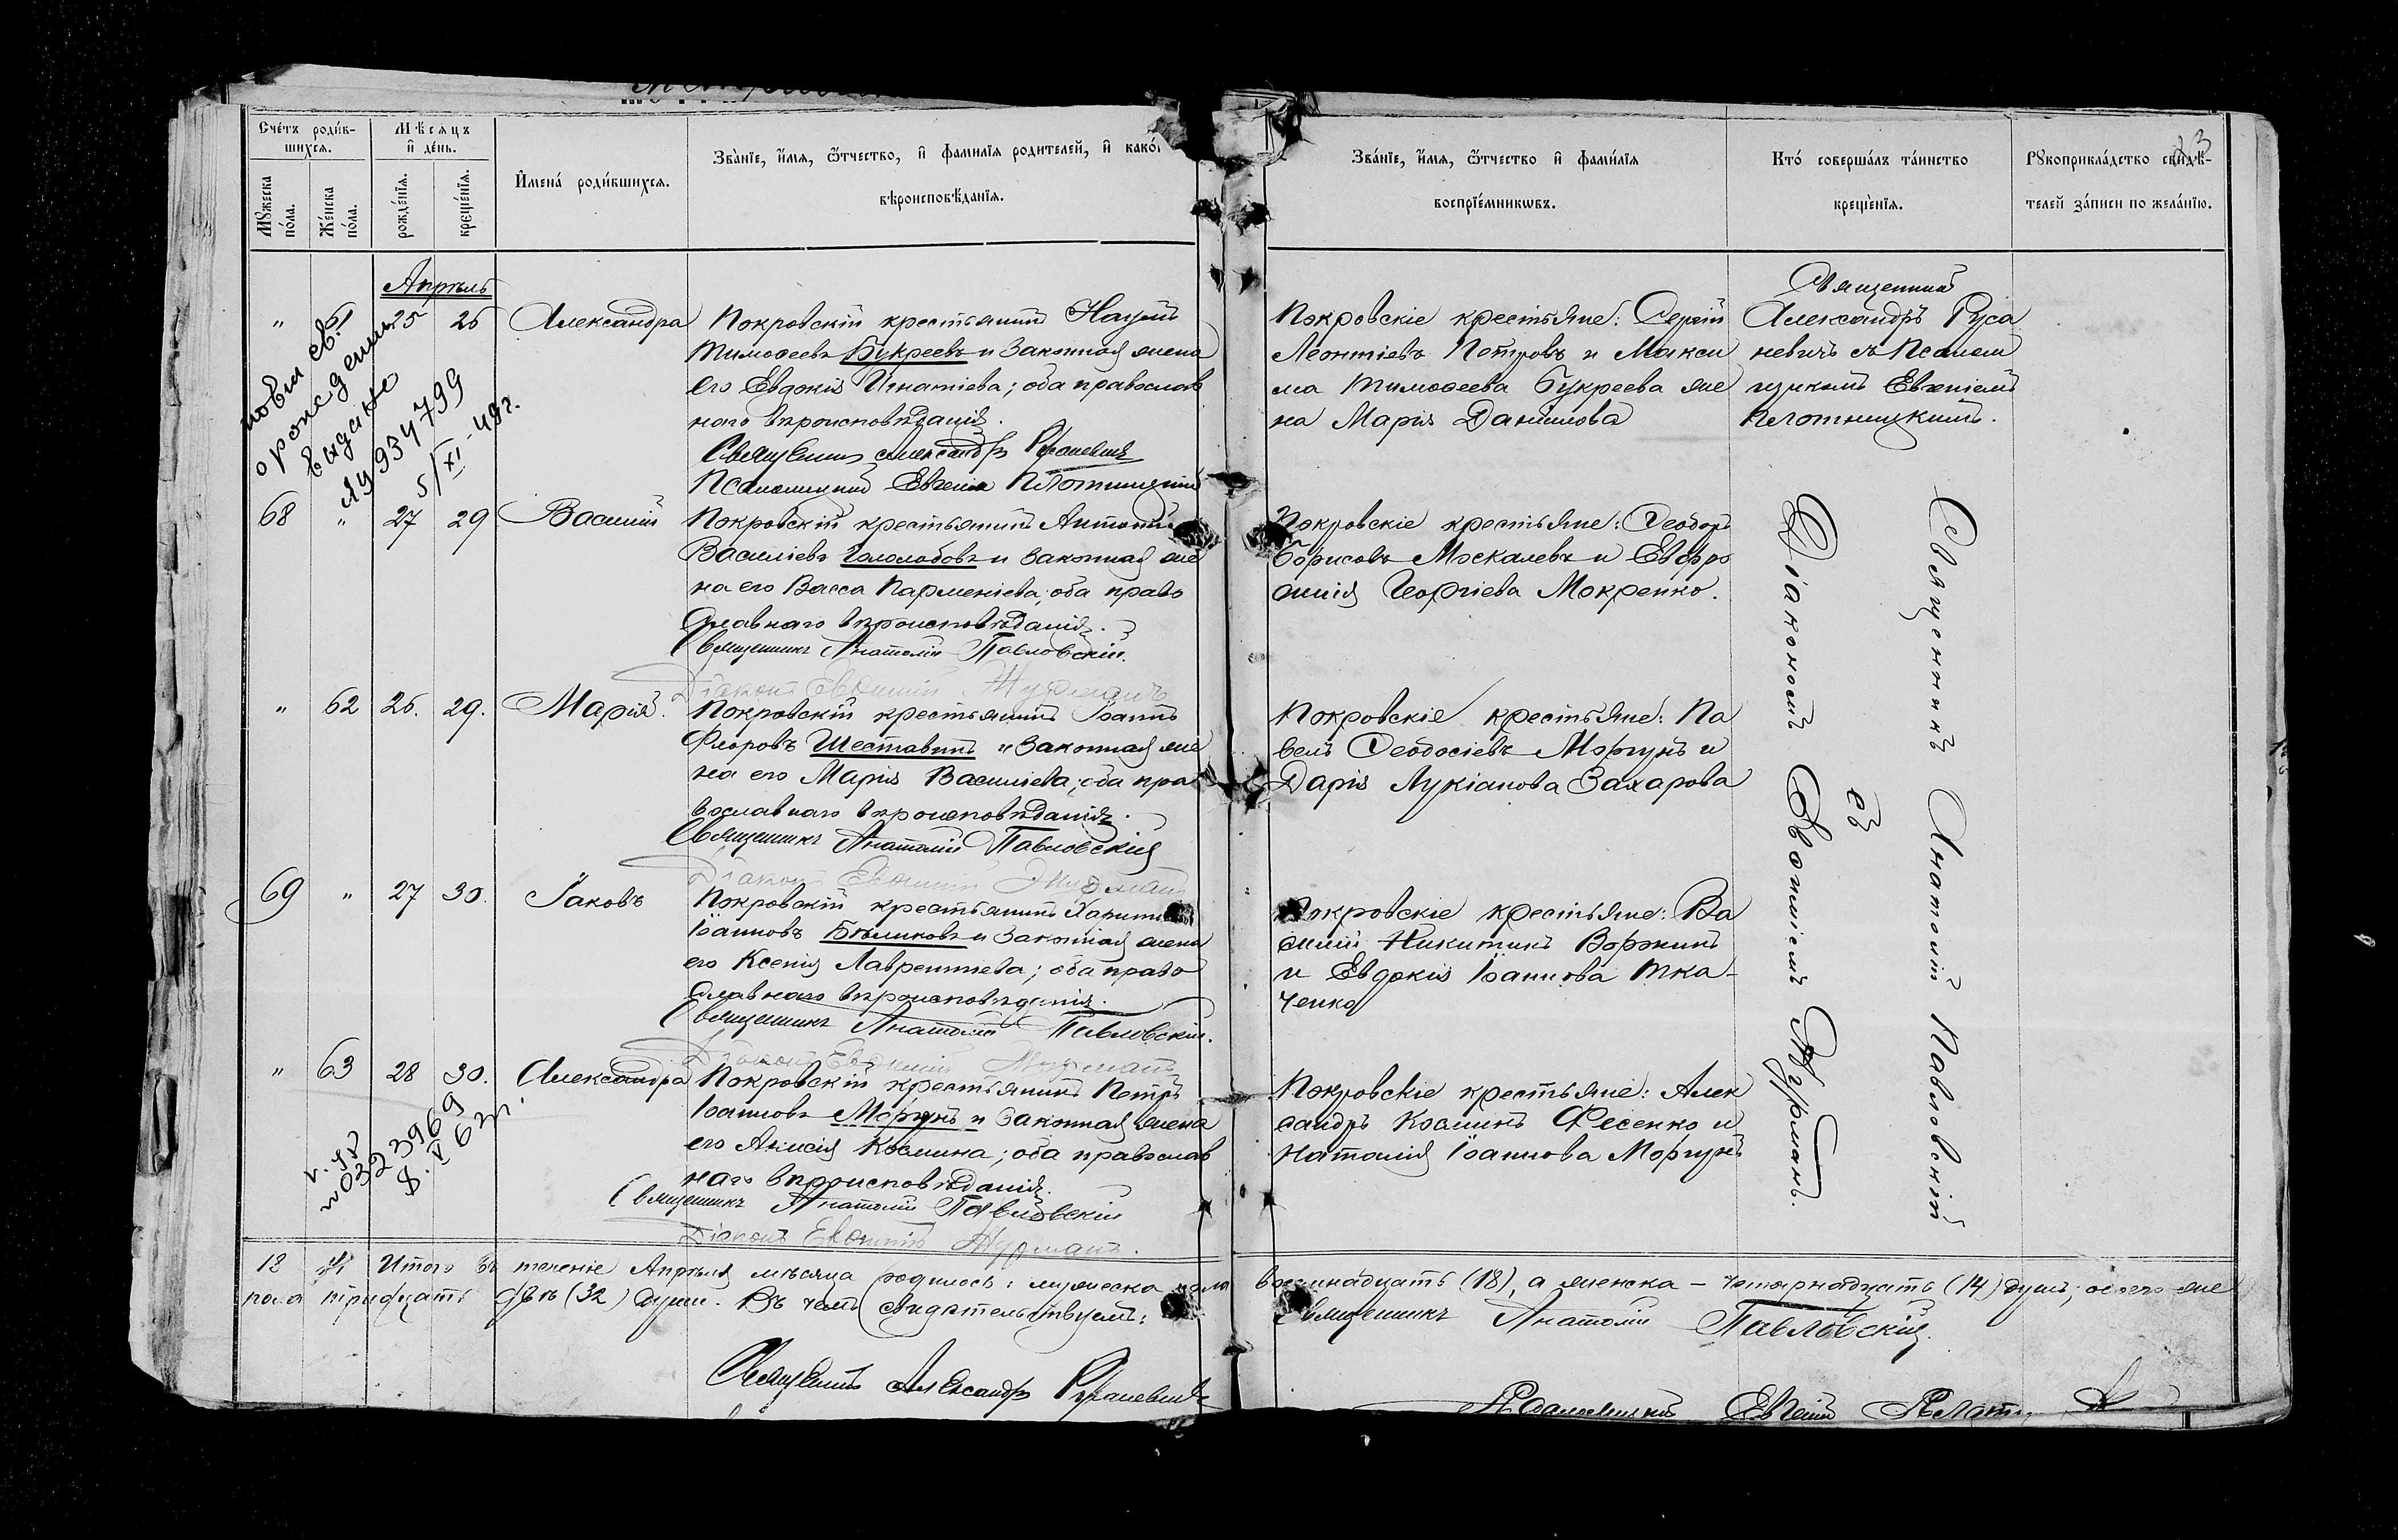 23
Счетъ родив-
шихся.
Мѣсяцъ
и день.
Мужеска
пола.
Женска
пола.
рожденія.
крещенія.
Имена родившихся.
Званіе, имя, отчество, и фамилія родителей, и какого
вѣроисповѣданія.
Званіе, имя, отчество и фамилія
воспріемниковъ.
Кто совершалъ таинство
крещенія.
Рукоприкладство свидѣ-
телей записи по желанію.
Апрѣль
" 61 25 26 Александра
Покровскій крестьянинъ Наумъ
Тимоѳеевъ Букреевъ и законная жена
его Евдокія Игнатіева; оба православ
наго вѣроисповѣданія.
Священникъ Александръ Русаневичъ
Псаломщикъ Евгеній Плотницкій
Покровскіе крестьяне: Сергій
Леонтіевъ Петровъ и Макси
ма Тимоѳеева Букреева же
на Марія Даніилова
Священникъ
Александръ Руса
невичъ съ Псалом
щикомъ Евгеніемъ
Плотницкимъ.
новым св.
о рождении
выдано
ЯУ 934799
5/XI-48г.
68 " 27 29 Василій
Покровскій крестьянинъ Антоній
Василіевъ Гололобовъ и законная же
на его Васса Парменіева; оба право
славнаго вѣроисповѣданія.
Священникъ Анатолій Павловскій.
Діаконъ Евѳимій Журманъ
Покровскіе крестьяне: Ѳеодоръ
Борисовъ Москалевъ и Евфро
синія Георгіева Мокренко.
" 62 26. 29. Марія.
Покровскій крестьянинъ Іоаннъ
Флоровъ Шеставинъ и законная же
на его Марія Василіева; оба пра
вославнаго вѣроисповѣданія.
Священникъ Анатолій Павловскій
Діаконъ Евѳимій Журманъ
Покровскіе крестьяне: Па
велъ Ѳеодосіевъ Моргунъ и
Дарія Лукіанова Захарова
69 " 27 30. Іаковъ
Покровскій крестьянинъ Харитонъ
Іоанновъ Бѣликовъ и законная жена
его Ксенія Лаврентіева; оба право
славнаго вѣроисповѣданія.
Священникъ Анатолій Павловскій.
Діаконъ Евѳимій Журманъ
Покровскіе крестьяне: Ва
силій Никитинъ Воржинъ
и Евдокія Іоаннова Тка-
ченко
" 63 28 30. Александра
Покровскій крестьянинъ Петръ
Іоанновъ Моргунъ и законная жена
его Анисія Космина; оба православ
наго вѣроисповѣданія.
Священникъ Анатолій Павловскій
Діаконъ Евѳимій Журманъ.
Покровскіе крестьяне: Алек
сандръ Косминъ Фесенко и
Наталія Іоаннова Моргунъ
03223969
8. V 62г.
Священникъ Анатолій Павловскій
съ
Діакономъ Евѳиміемъ Журманъ.
18 14 Итого въ теченіе Апрѣля мѣсяца родилось: мужеска пола восемнадцать (18), а женска – четырнадцать (14) душъ; обоего же
пола тридцать двѣ (32) души. Въ чемъ свидѣтельствуемъ: Священникъ Анатолій Павловскій.
Священникъ Александръ Русаневичъ
Псаломщикъ Евгеній